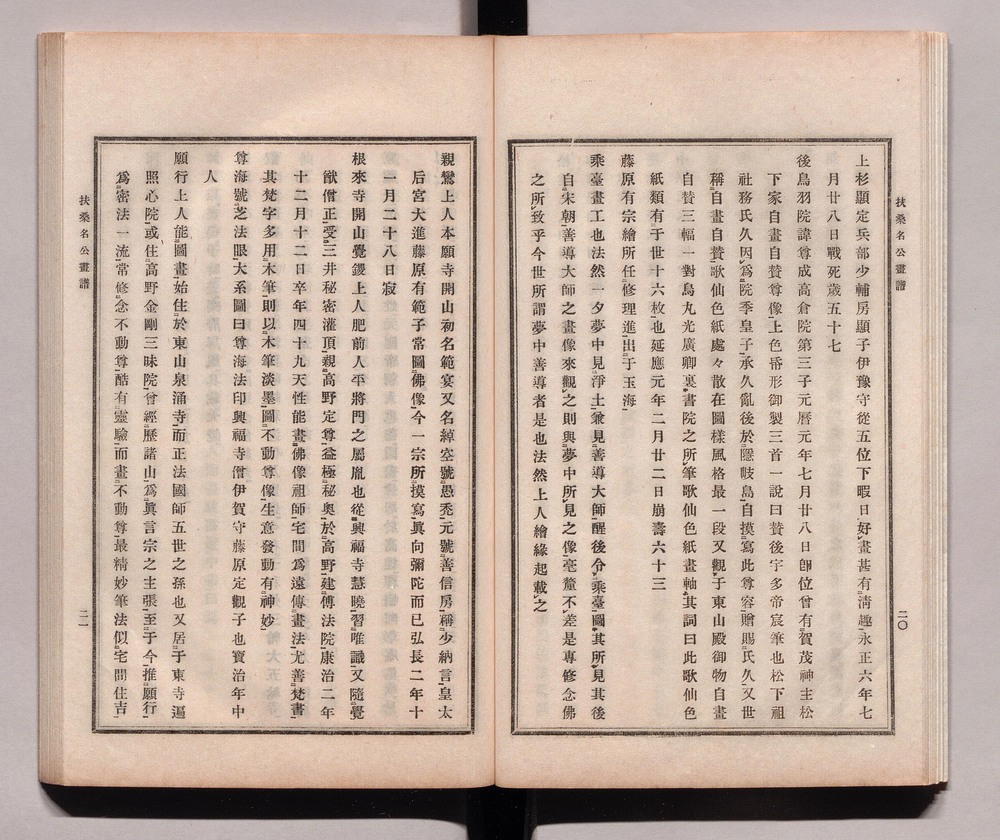 扶桑名公畫譜
二〇
上杉顯定兵部少輔房顯子伊豫守從五位下暇日好畫甚有淸趣永正六年七
月廿八日戰死歲五十七
後鳥羽院諱尊成高倉院第三子元曆元年七月廿八日卽位曾有賀茂神主松
下家自畫自贊尊像上色昏形御製三首一說曰贊後宇多帝宸筆也松下祖
社務氏久因爲院季皇子承久亂後於隱岐島自摸寫此尊容贈賜氏久又世
稱自畫自贊歌仙色紙處々散在圖樣風格最一段又觀于東山殿御物自畫
自替三幅一對烏丸光廣卿裏書院之所筆歌仙色紙畫軸其詞曰此歌仙色
紙類有于世十六枚也延應元年二月廿二日崩壽六十三
藤原有宗繪所任修理進出于玉海
乘臺畫工也法然一夕夢中見淨土兼見善導大師醒後令乘臺圖其所見其後
自宋朝善導大師之畫像來觀之則與夢中所見之像毫釐不差是專修念佛
之所致乎今世所謂夢中善導者是也法然上人繪緣起載之
親鸞上人本願寺開山初名範宴又名綽空號愚禿元號善信房稱少納言皇太
后宮大進藤原有範子常圖佛像今一宗所摸寫眞向彌陀而已弘長二年十
一月二十八日寂
根來寺開山覺鑁上人肥前人平將門之屬胤也從興福寺慧曉習唯識又隨覺
猷僧正受三井秘密灌頂親高野定尊益極秘奧於高野建傳法院康治二年
十二月十二日卒年四十九天性能畫佛像祖師宅間爲遠傳畫法尤善梵書
其梵字多用木筆則以木筆淡墨圖不動尊像生意發動有神妙
尊海號芝法眼大系圖曰尊海法印興福寺僧伊賀守藤原定觀子也寶治年中
人
願行上人能圖畫始住於東山泉涌寺而正法國師五世之孫也又居于東寺遍
照心院或住高野金剛三昧院曾經歷諸山爲眞言宗之主張至于今推願行
爲密法一流常修念不動尊酷有靈驗而畫不動尊最精妙筆法似宅間住吉
扶桑名公畫譜
二一